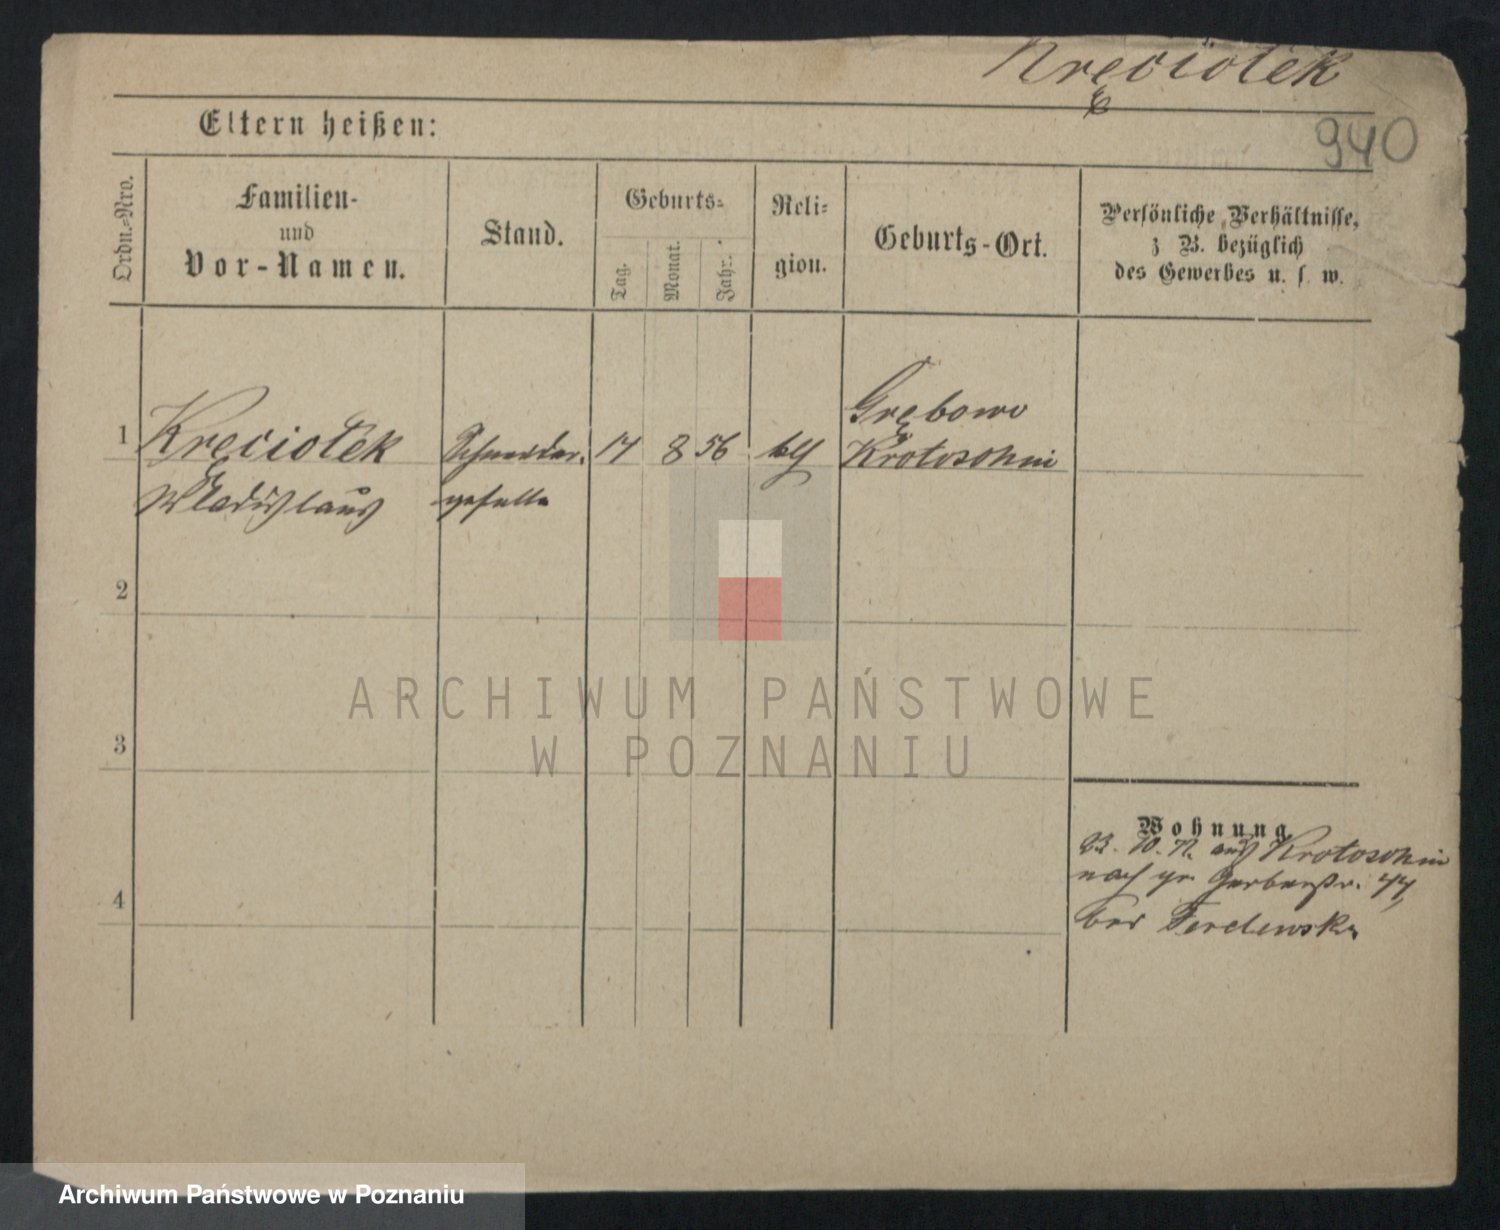 Kręciołek
940
Eltern heißen:
Ordn.-Nro.
Familien-
und
Vor-Namen.
Stand.
Geburts-
Tag.
Monat.
Jahr.
Reli-
gion.
Geburts-Ort.
Persönliche Verhältnisse,
z. B. bezüglich
des Gewerbes u. s. w.
1
Kręciołek
Wladislaus
Schneider-
geselle
17
8
56
klj
Grębowo
Krotoschin
2
3
4
Wohnung
aus Krotoschin
nach gr. Gerberstr. 44,
bei
ARCHIWUM PAŃSTWOWE
W POZNANIU
Archiwum Państwowe w Poznaniu